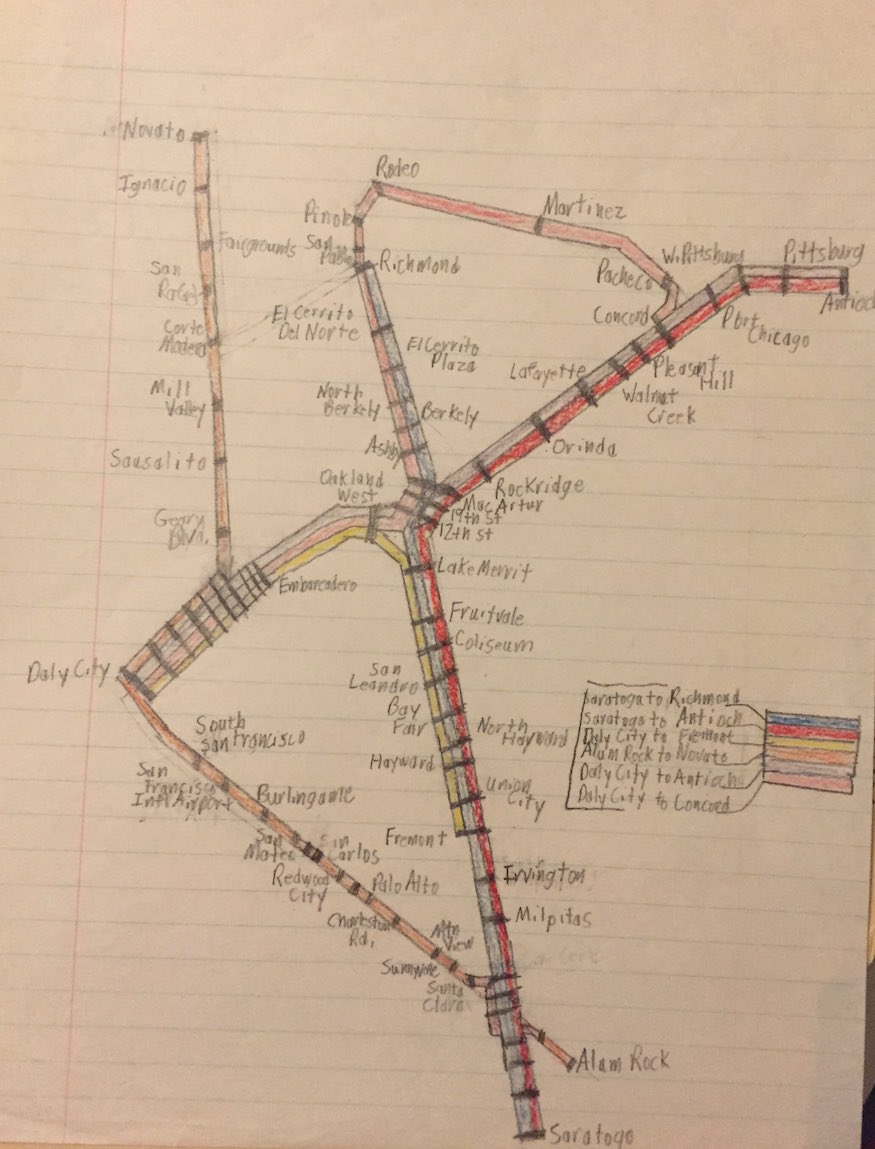 Novato
Rodeo
Ignacio
Martinez
Pinole
Fairgrounds
San
Pablo
Richmond
W. Pittsburg
Pittsburg
San
Rafael
Pacheco
Antioch
El Cerrito
Del Norte
Concord
Port
Chicago
Corte
Madera
El Cerrito
Plaza
Lafayette
Pleasant
Hill
Mill
Valley
North
Berkely
Berkely
Walnut
Creek
Ashby
Orinda
Sausalito
Oakland
West
Rockridge
MacArtur
19th St
12th St
Geary
Blvd.
Embarcadero
Lake Merrit
Fruitvale
Coliseum
Daly City
San
Leandro
Bay
Fair
North
Hayward
South
San Francisco
Hayward
San
Francisco
Int'l Airport
Burlingame
Union
City
Saratoga to Richmond
Saratoga to Antioch
Daly City to Fremont
Alum Rock to Novato
Daly City to Antioch
Daly City to Concord
San
Mateo
San
Carlos
Fremont
Redwood
City
Palo Alto
Irvington
Charleston
Rd.
Milpitas
Mtn
View
Sunnyvale
Santa
Clara
Alam Rock
Saratogo